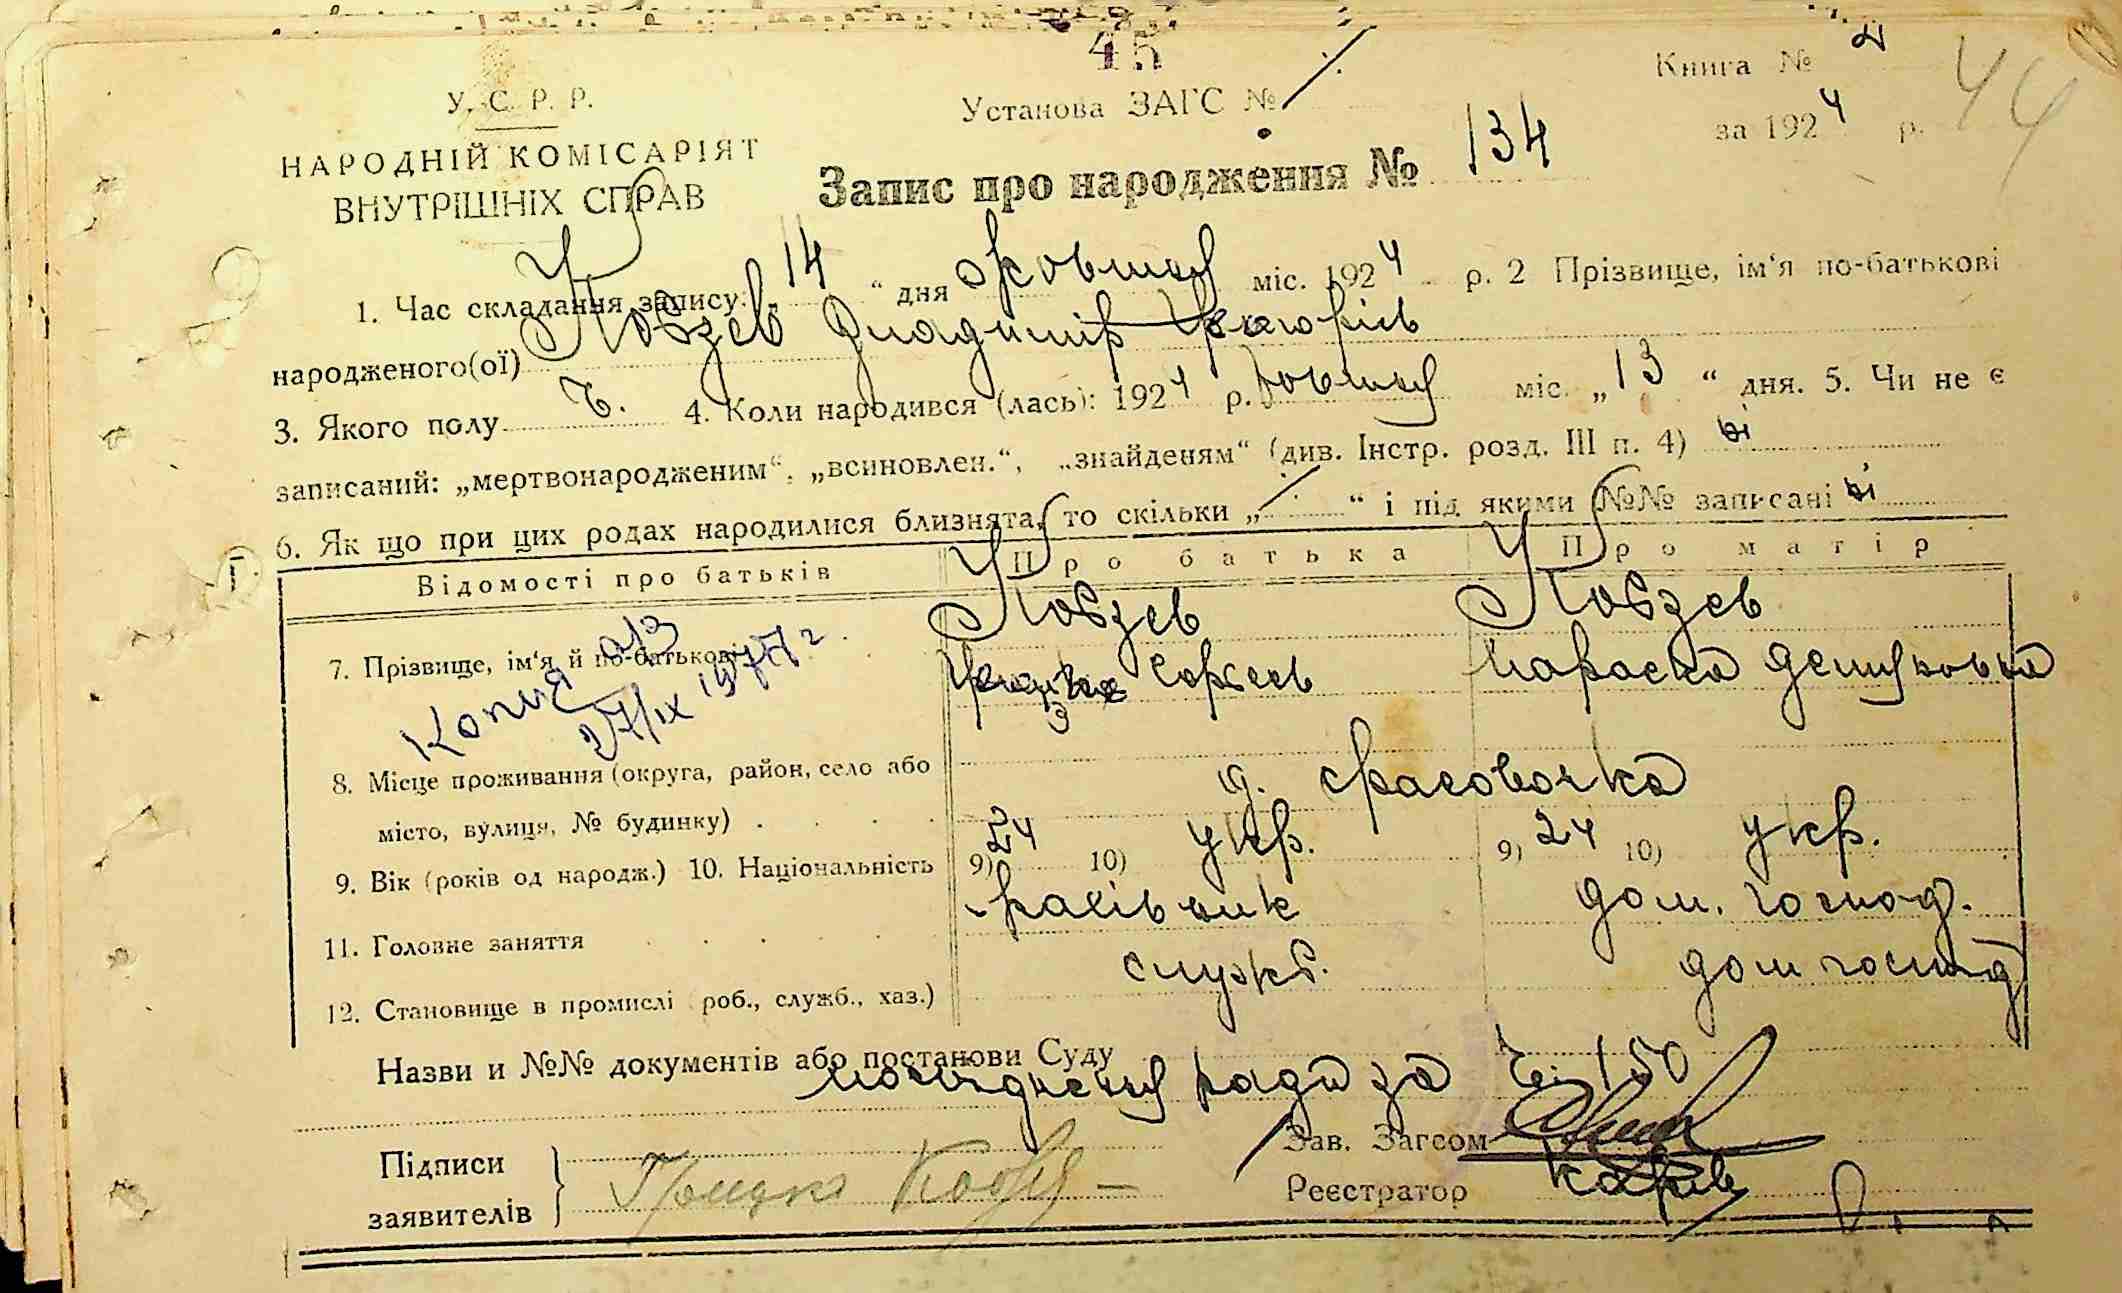 45
Книга № 2
44
У. С. Р. Р.
Установа ЗАГС №
за 1924 р.
НАРОДНІЙ КОМІСАРІЯТ
ВНУТРІШНІХ СПРАВ
Запис про народження № 134
1. Час складання запису „14“ дня жовтня міс. 1924 р. 2 Прізвище, ім‘я по-батькові
народженого(ої) Кобзев Владимір
3. Якого полу Ч. 4. Коли народився (лась): 1924 р. жовтня міс. „13“ дня. 5. Чи не є
записаний: „мертвонародженим“, „всиновлен.“, „знайденям“ (див. Інстр. розд. III п. 4) ні
6. Як що при цих родах народилися близнята, то скільки „ “ і під якими №№ записані ні
Відомості про батьків Про батька Про матір
7. Прізвище, ім‘я й по-батькові Кобзев Кобзев
Сергеев Параска Демяновна
Копия
27/IX 1977 г
8. Місце проживання (округа, район, село або
місто, вулиця, № будинку)
9. Вік (років од народж.) 10. Національність 9) 24 10) укр. 9) 24 10) укр.
11. Головне заняття дом. господ.
12. Становище в промислі роб., служб., хаз.) служб. дом господ
Назви и №№ документів або постанови Суду
ради за Ч. 150
Підписи
заявителів
Грицко Кобз
Зав. Загсом
Реєстратор